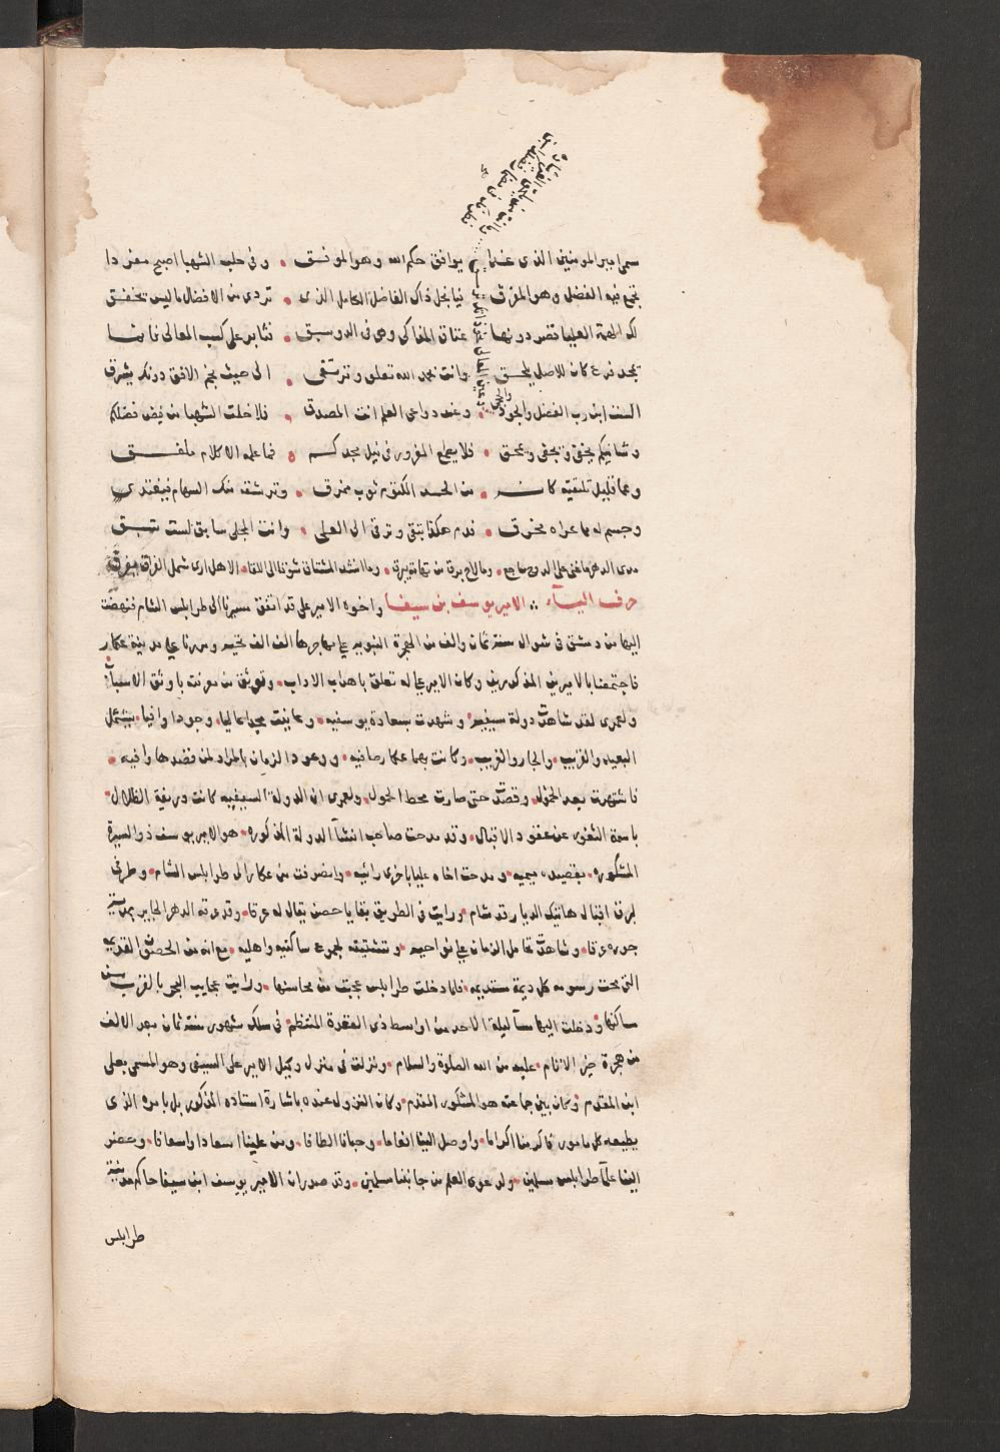 سمي امير المومنين الذي غدا يوافق حكم الله وهو الموفق وفي حلب الشهبا اصبح مفردا
تجمع فيه الفضل وهو المفرق فيا نجل ذاك الفاضل الكامل الذي تردى من الافضال ما ليس تخفق
لك الهمة العليا تقصر دونها عتاق المذاكي وهى في الدو سبق فثابر على كسب المعالي فانما
تجد فرع كان للاصل يلحق وانت بحمد الله تعلو وترتقى الى حيث نجم الافق دونك يشرق
الست ابن رب الفضل والجود وعند دواعى العلم انت المصدق فلا خلت الشهبا من فيض فضلكم
وشانيكم يخفق ويحق فلا يطمع المغرور في نيل مجدكم فما علمه الا كلام ملفق
وعما قليل تلتقيه كانه من الحسد المكتوم ثوب ممزق وترشقه منك السهام فيغتدى
وجسم له مما عراه مخرق فدم هكذا تبقى وترقى الى العلى وانت المجلى سابق لست تسبق
مدى الدهر ما غنى على الدوح ساجع وما لاح برق من تهامة يبرق وما انشد المشتاق شوقا الى اللقا الا هل ارى شمل الفراق يفرق
حرف الياء الامير يوسف بن سيفا واخوه الامير على قد اتفق مسيرنا الى طرابلس الشام فنهضت
اليها من دمشق في شوال سنة ثمان والف من الهجرة النبوية على مهاجرها الف الف تحيه ومررنا على مدينة عكار
فاجتمعنا بالاميرين المذكورين وكان الامير على له تعلق باهداب الاداب وتوثق من معرفته باوثق الاسباب
ولعمرى لقد شاهدت دولة سيفيه وشهدت بسعادة يوسفيه وعاينت مجدا عاليا وجودا وافيا يشتمل
البعيد والقريب والجار والغريب وكانت بهما عكار صافيه ووعود الزمان بالمراد لمن قصدها وافيه
فاشتهرت بعد الخمول وقصدت حتى صارت محط الحمول ولعمرى ان الدولة السيفيه كانت وريفة الظلال
باسمة الثغور عن عقود الاقبال وقد مدحت صاحب انشا الدولة المذكوره هو الامير يوسف ذو السيرة
المشكوره بقصيده ميميه ومدحت اخاه عليا باخرى رائيه وانصرفت من عكار الى طرابلس الشام وطرفى
لبرق اقبال هاتيك الديار قد شام ورايت في الطريق بقايا حصن يقال له عرقا وقد عرقه الدهر الجاير بمدية
جوره عرقا وشاهدت تحامل الزمان على نواحيه وتشتيته لجموع ساكنيه واهليه مع انه من الحصون القديمه
التي محت رسومه كل ديمة مستديمه فلما دخلت طرابلس عجبت من محاسنها ورايت عجايب البحر بالقرب من
ساكنها ودخلت اليها مسآ ليلة الاحد من اواسط ذى القعدة المنتظم في سلك شهور سنة ثمان بعد الالف
من هجرة خير الانام عليه من الله الصلوة والسلام ونزلت في منزل وكيل الامير على السيفى وهو المسمى بعلى
ابن المقدم وكان بين جماعته هو المشكور المقدم وكان النزول عنده باشارة استاذه المذكور بل بامره الذى
يطيعه كل مامور فاكرمنا اكراما واوصل الينا انعاما وحبانا الطافا ومن علينا اسعادا واسعافا وحضر
الينا علمآ طرابلس مسلمين ولدعوى العلم من جانبنا مسلمين وقد صدر ان الامير يوسف ابن سيفا حاكم مدينة
طرابلس